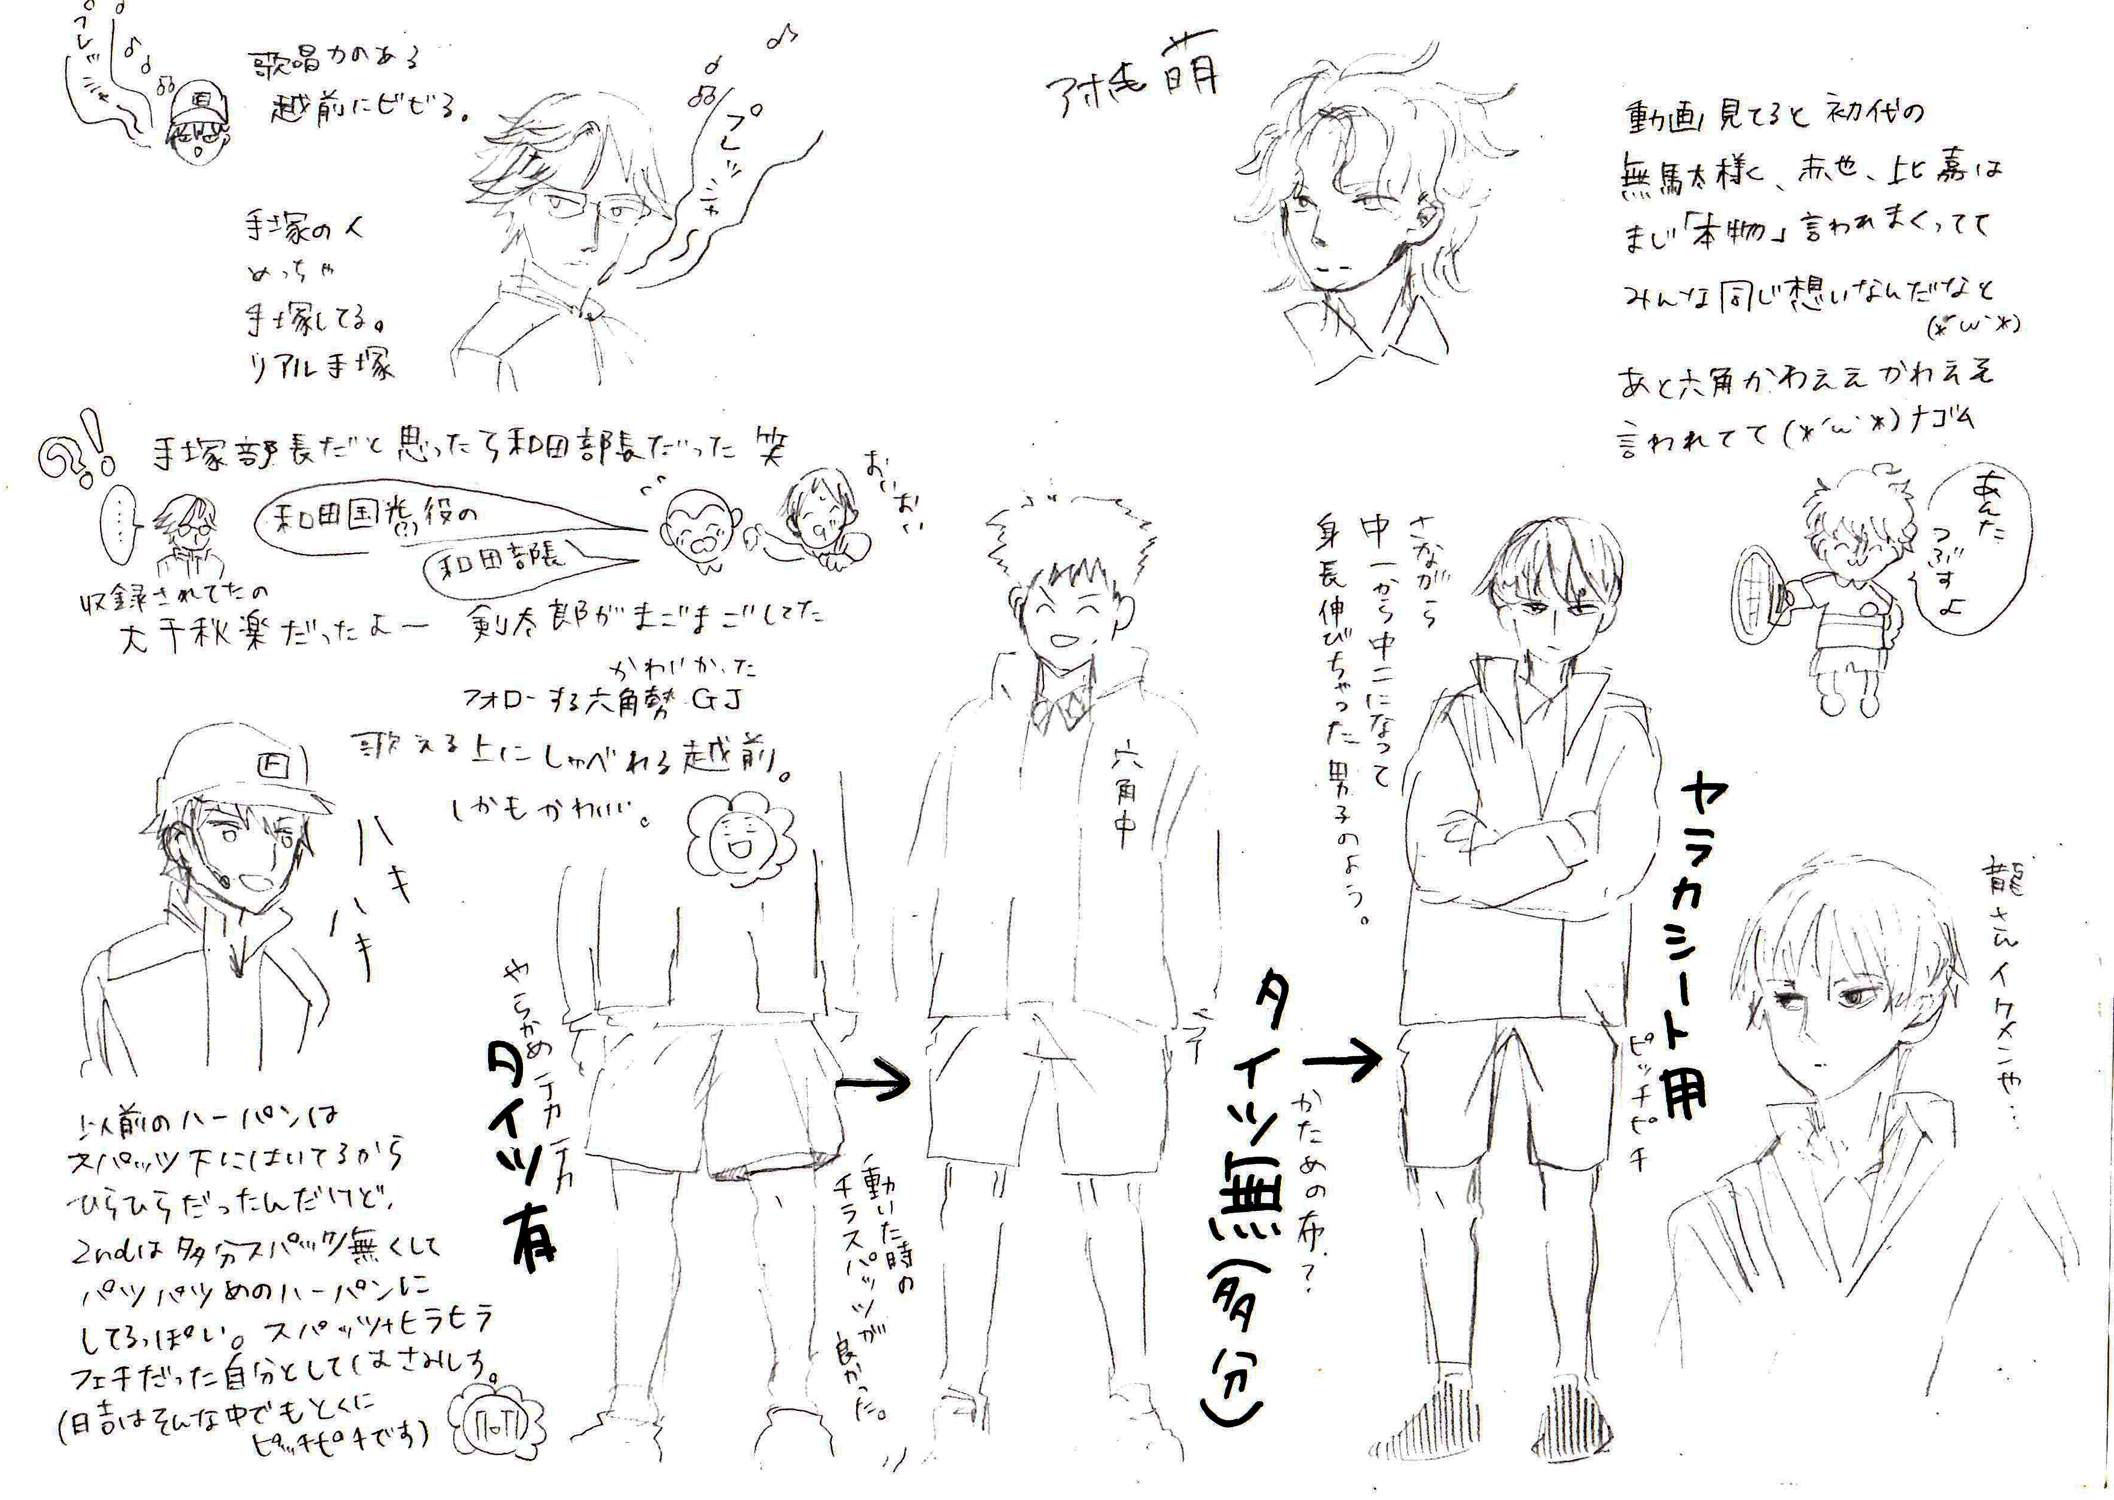 プレッシャー
歌唱力のある
越前にビビる。
手塚の人
めっちゃ
手塚してる。
リアル手塚
プレッシャー
萌
動画見てると初代の
無馬太様く、赤也、比嘉は
まじ「本物」言われまくってて
みんな同じ想いなんだなと
(*´ω`*)
あと六角かわええかわええ
言われてて(*´ω`*)ナゴム
あんた
つぶすよ
?!
手塚部長だと思ったら和田部長だった笑
……
和田国光(?)役の
和田部長
おいおい
収録されてたの
大千秋楽だったよー
剣太郎がまごまごしてた
かわいかった
フォローする六角勢GJ
歌える上にしゃべれる越前。
しかもかわいい。
ハキ
ハキ
六角中
さながら
中一から中二になって
身長伸びちゃった男子のよう。
ヤラカシート用
龍さんイケメンや…
やらかめテカテカ
タイツ有
動いた時の
チラスパッツが
良かった。
タイツ無(多分)
かための布?
ピッチピチ
以前のハーパンは
スパッツ下にはいてるから
ひらひらだったんだけど、
2ndは多分スパッツ無くして
パツパツめのハーパンに
してるっぽい。スパッツ+ヒラヒラ
フェチだった自分としてはさみしす。
(日吉はそんな中でもとくに
ピッチピチです)